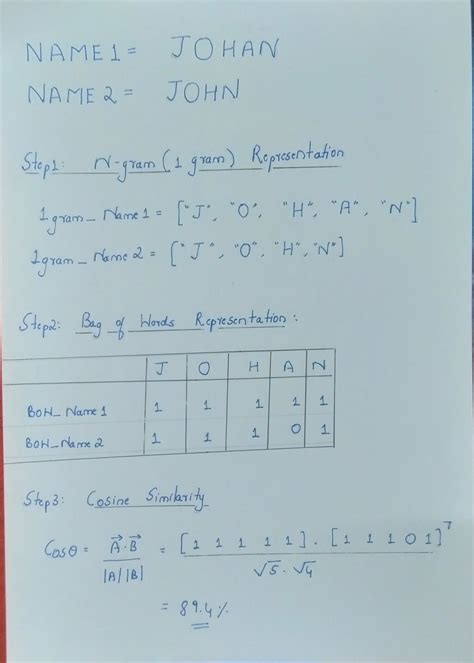 NAME 1 = JOHAN
NAME 2 = JOHN
Step1: N-gram (1 gram) Representation
1gram_ Name 1 = ["J", "O", "H", "A", "N"]
1gram_ Name 2 = ["J", "O", "H", "N"]
Step2: Bag of Words Representation:
J O H A N
BOW_ Name 1 1 1 1 1 1
BOW_ Name 2 1 1 1 0 1
Step3: Cosine Similarity
Cosθ = A⃗.B⃗ / |A||B| = [1 1 1 1 1] . [1 1 1 0 1]ᵀ / √5 . √4
= 89.4%